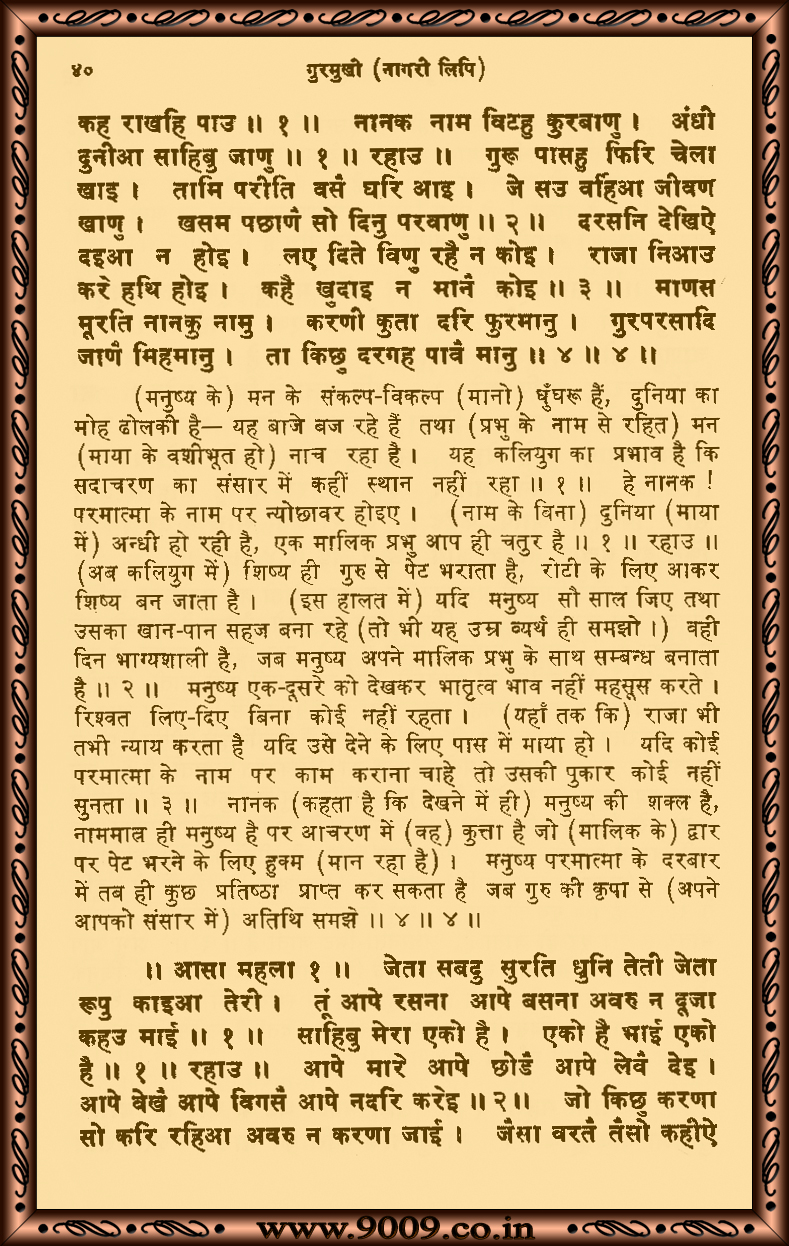 ४० गुरमुखी (नागरी लिपि)
कह राखहि पाउ ॥ १ ॥ नानक नाम विटहु कुरबाणु । अंधी
दुनीआ साहिबु जाणु ॥ १ ॥ रहाउ ॥ गुरू पासहु फिरि चेला
खाइ । तामि परीति वसै घरि आइ । जे सउ वर्हिआ जीवण
खाणु । खसम पछाणै सो दिनु परवाणु ॥ २ ॥ दरसनि देखिऐ
दइआ न होइ । लए दिते विणु रहै न कोइ । राजा निआउ
करे हथि होइ । कहै खुदाइ न मानै कोइ ॥ ३ ॥ माणस
मूरति नानकु नामु । करणी कुता दरि फुरमानु । गुरपरसादि
जाणै मिहमानु । ता किछु दरगह पावै मानु ॥ ४ ॥ ४ ॥
(मनुष्य के) मन के संकल्प-विकल्प (मानो) घुँघरू हैं, दुनिया का
मोह ढोलकी है— यह बाजे बज रहे हैं तथा (प्रभु के नाम से रहित) मन
(माया के वशीभूत हो) नाच रहा है । यह कलियुग का प्रभाव है कि
सदाचरण का संसार में कहीं स्थान नहीं रहा ॥ १ ॥ हे नानक !
परमात्मा के नाम पर न्योछावर होइए । (नाम के बिना) दुनिया (माया
में) अन्धी हो रही है, एक मालिक प्रभु आप ही चतुर है ॥ १ ॥ रहाउ ॥
(अब कलियुग में) शिष्य ही गुरु से पेट भराता है, रोटी के लिए आकर
शिष्य बन जाता है । (इस हालत में) यदि मनुष्य सौ साल जिए तथा
उसका खान-पान सहज बना रहे (तो भी यह उम्र व्यर्थ ही समझो ।) वही
दिन भाग्यशाली है, जब मनुष्य अपने मालिक प्रभु के साथ सम्बन्ध बनाता
है ॥ २ ॥ मनुष्य एक-दूसरे को देखकर भातृत्व भाव नहीं महसूस करते ।
रिश्वत लिए-दिए बिना कोई नहीं रहता । (यहाँ तक कि) राजा भी
तभी न्याय करता है यदि उसे देने के लिए पास में माया हो । यदि कोई
परमात्मा के नाम पर काम कराना चाहे तो उसकी पुकार कोई नहीं
सुनता ॥ ३ ॥ नानक (कहता है कि देखने में ही) मनुष्य की शक्ल है,
नाममात्र ही मनुष्य है पर आचरण में (वह) कुत्ता है जो (मालिक के) द्वार
पर पेट भरने के लिए हुक्म (मान रहा है) । मनुष्य परमात्मा के दरबार
में तब ही कुछ प्रतिष्ठा प्राप्त कर सकता है जब गुरु की कृपा से (अपने
आपको संसार में) अतिथि समझे ॥ ४ ॥ ४ ॥
॥ आसा महला १ ॥ जेता सबदु सुरति धुनि तेती जेता
रूपु काइआ तेरी । तूं आपे रसना आपे बसना अवरु न दूजा
कहउ माई ॥ १ ॥ साहिबु मेरा एको है । एको है भाई एको
है ॥ १ ॥ रहाउ ॥ आपे मारे आपे छोडै आपे लेवै देइ ।
आपे वेखै आपे विगसै आपे नदरि करेइ ॥ २ ॥ जो किछु करणा
सो करि रहिआ अवरु न करणा जाई । जैसा वरतै तैसो कहीऐ
www.9009.co.in